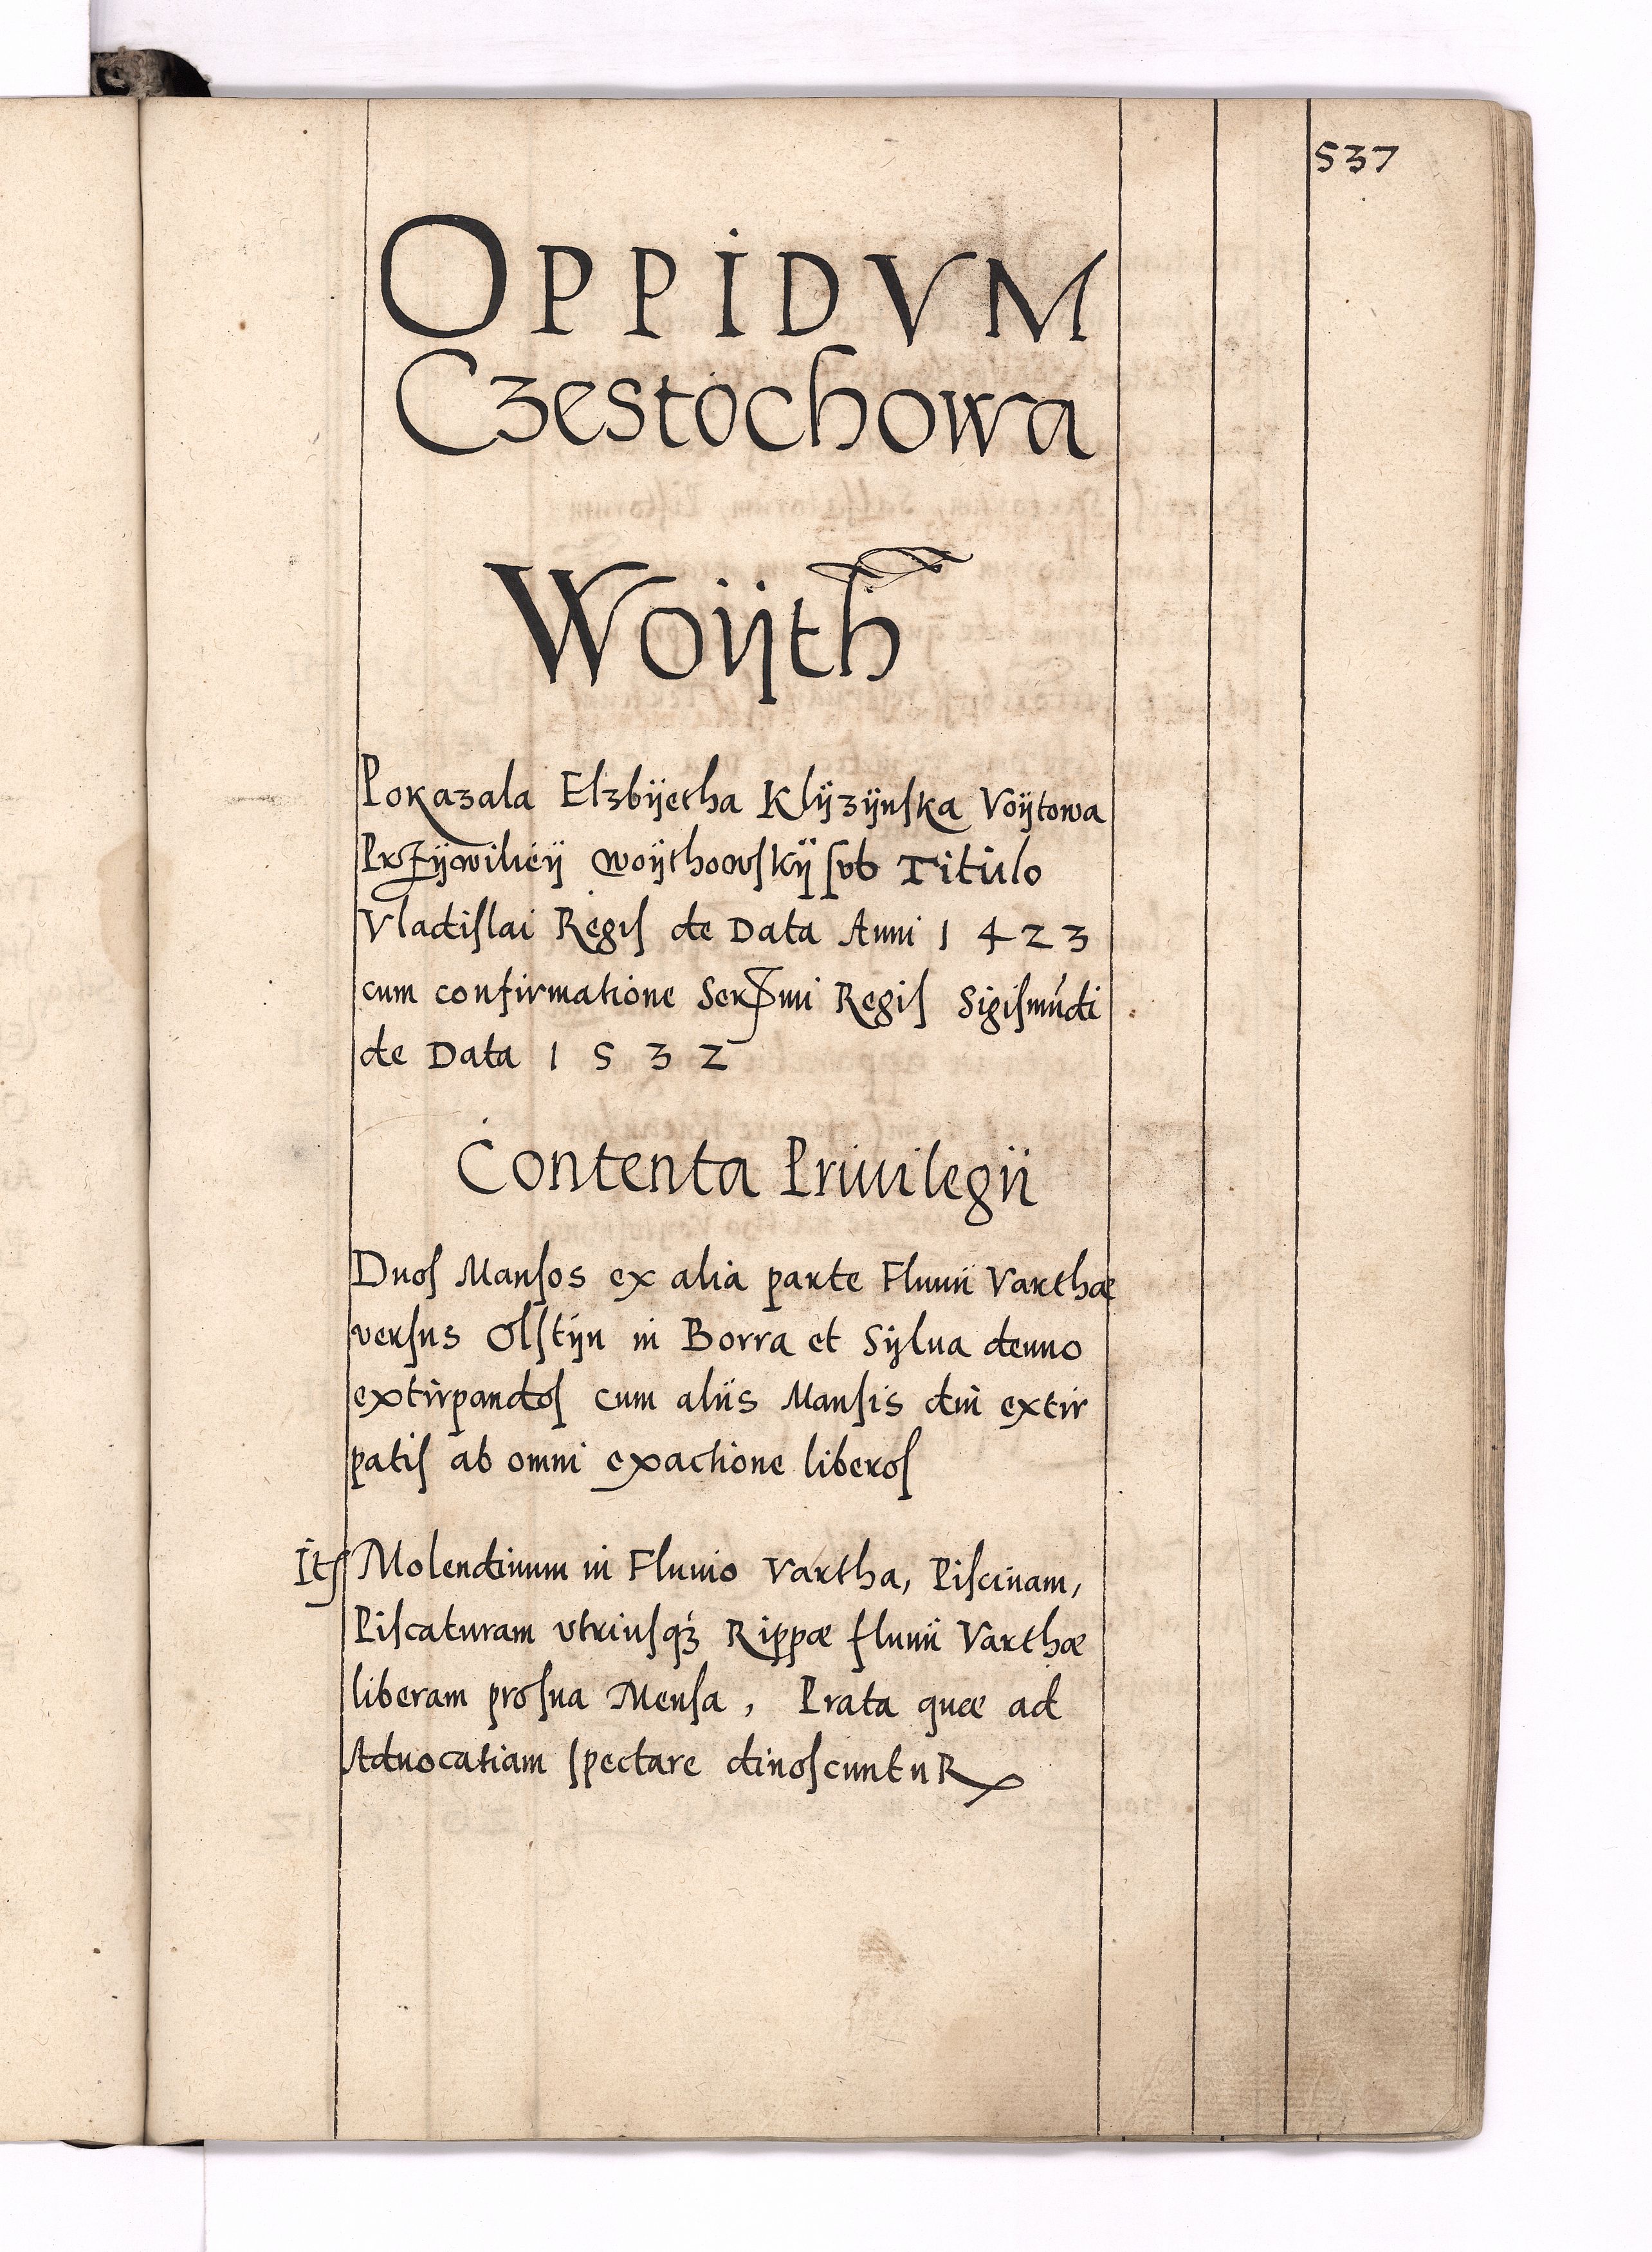 537
OPPIDVM
Czestochowa
Woÿth
Pokazala Elzbÿetha Klÿzÿnſka Voÿtowa
Przÿwileÿ woÿthowſkÿ ſvb Titulo
Vladiſlai Regiſ de Data Anni 1423
cum confirmatione Sermi Regiſ Sigiſmūdi
de Data 1532
Contenta Priuilegii
Duoſ Manſos ex alia parte Fluuii Varthæ
verſus Olſtÿn in Borra et Sÿlua denuo
extirpandoſ cum aliis Manſis diu extir
patiſ ab omni exactione liberoſ
Itē Molendinum in Fluuio Vartha, Piſcinam,
Piſcaturam vtriuſqꝫ Rippæ fluuii Varthæ
liberam pro ſua Menſa, Prata quæ ad
Aduocatiam ſpectare dinoſcuntuR